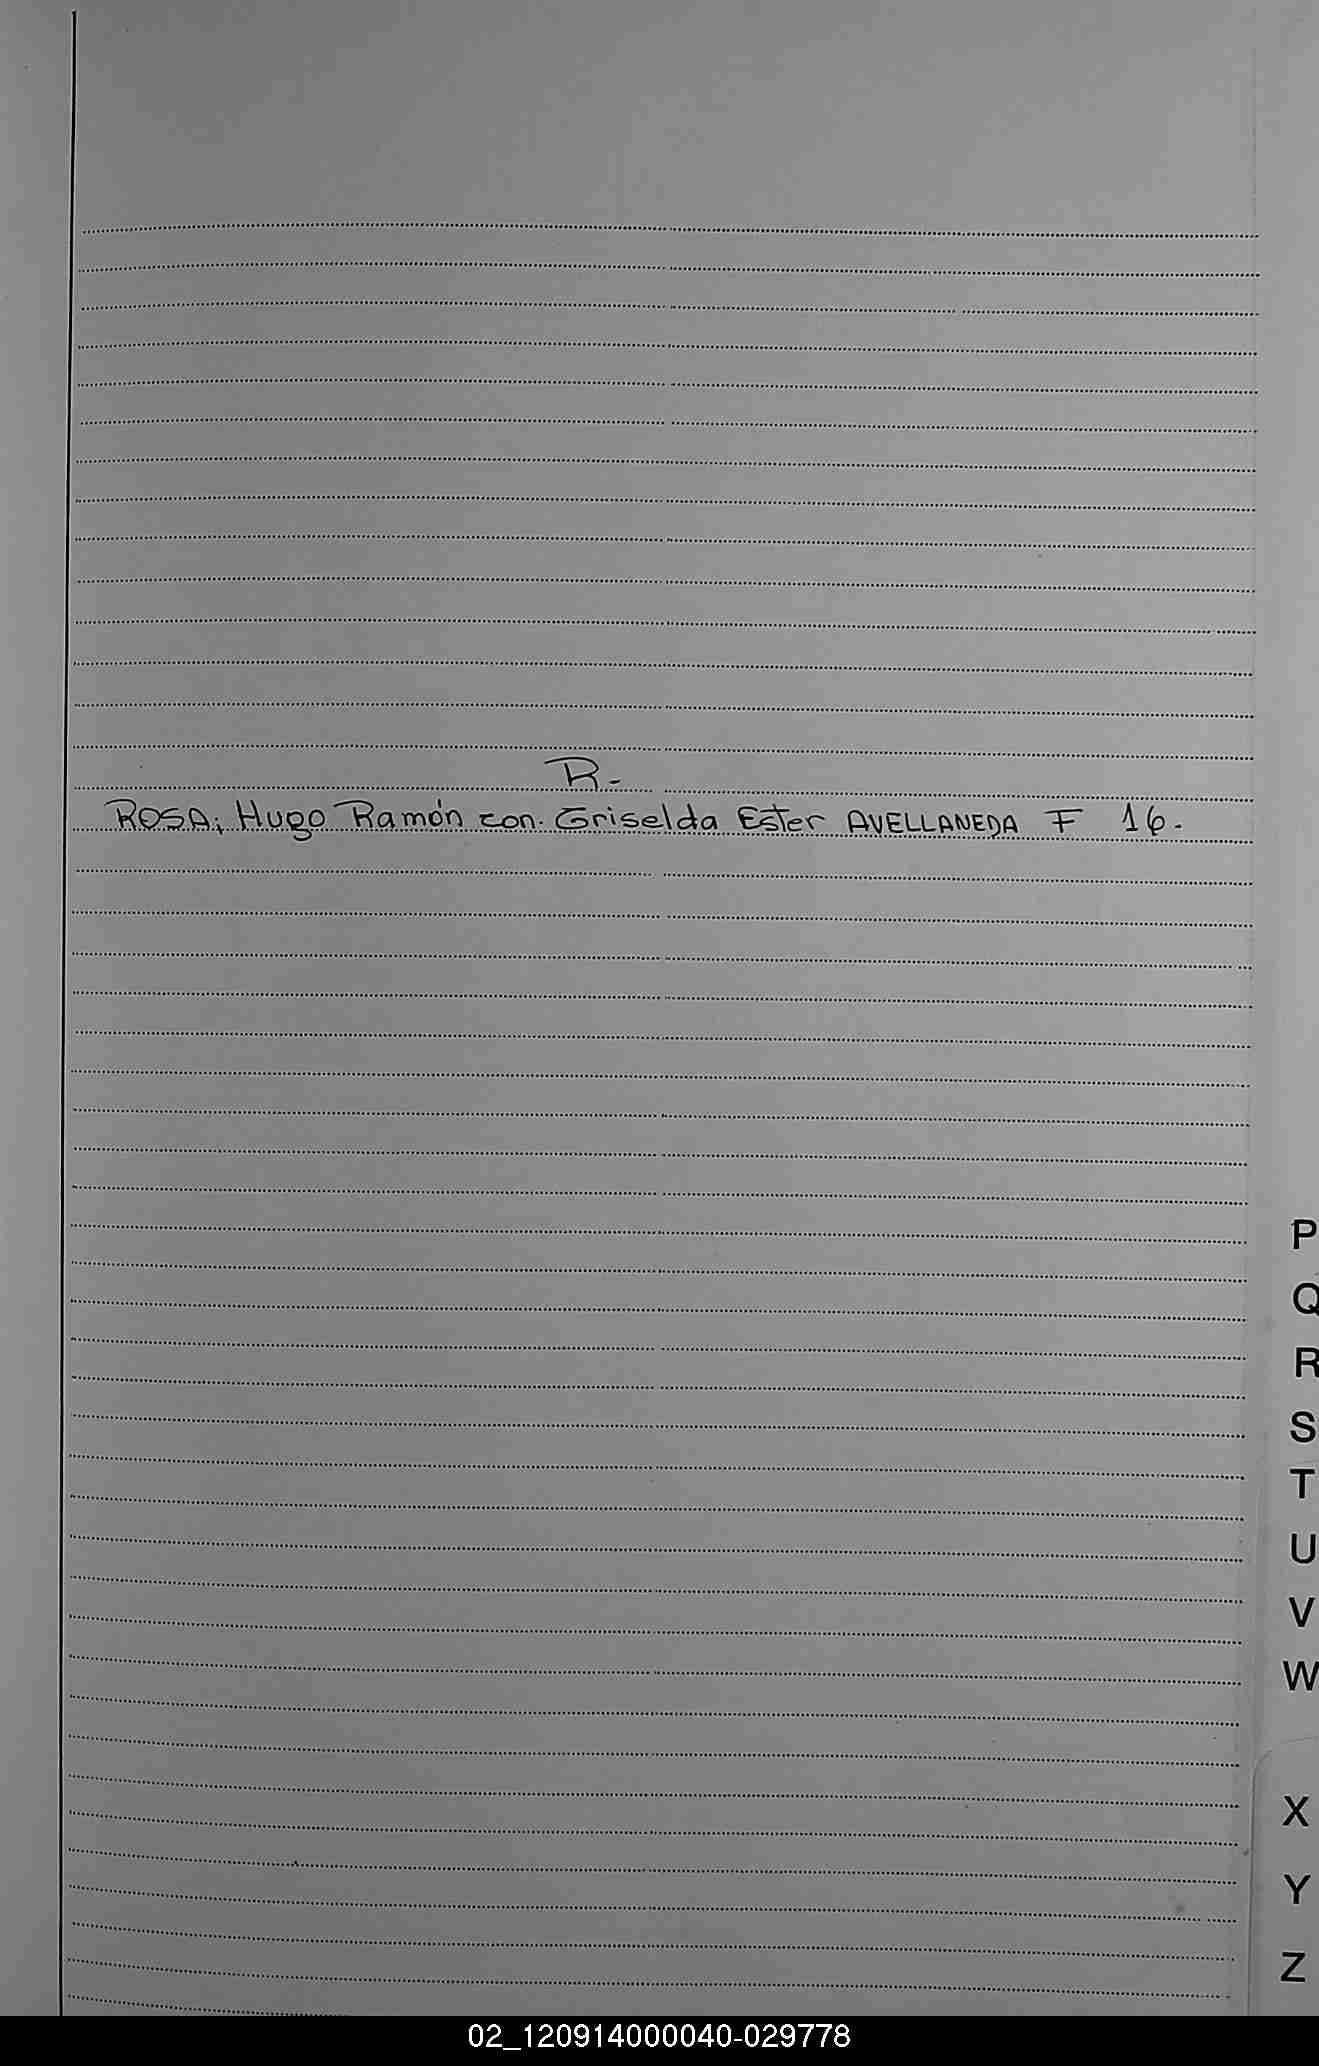 R.-
ROSA; Hugo Ramón con. Griselda Ester AVELLANEDA F 16.-
P
Q
R
S
T
U
V
W
X
Y
Z
02_120914000040-029778